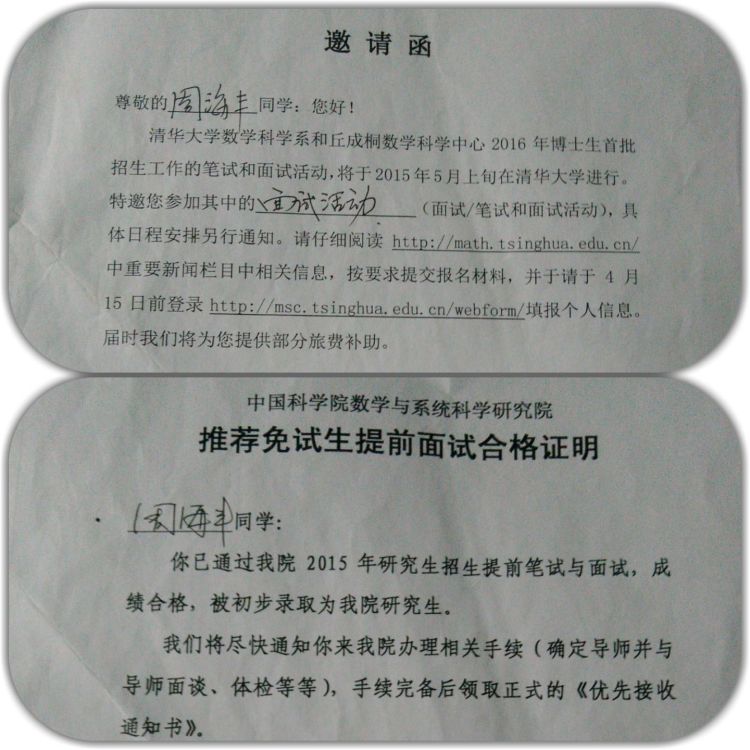 邀请函
尊敬的周海丰同学：您好！
清华大学数学科学系和丘成桐数学科学中心 2016 年博士生首批
招生工作的笔试和面试活动,将于2015年5月上旬在清华大学进行。
特邀您参加其中的面试活动（面试/笔试和面试活动），具
体日程安排另行通知。请仔细阅读 http://math.tsinghua.edu.cn/
中重要新闻栏目中相关信息，按要求提交报名材料，并于请于 4 月
15 日前登录 http://msc.tsinghua.edu.cn/webform/填报个人信息。
届时我们将为您提供部分旅费补助。
中国科学院数学与系统科学研究院
推荐免试生提前面试合格证明
周海丰同学：
你已通过我院 2015 年研究生招生提前笔试与面试，成
绩合格，被初步录取为我院研究生。
我们将尽快通知你来我院办理相关手续（确定导师并与
导师面谈、体检等等），手续完备后领取正式的《优先接收
通知书》。